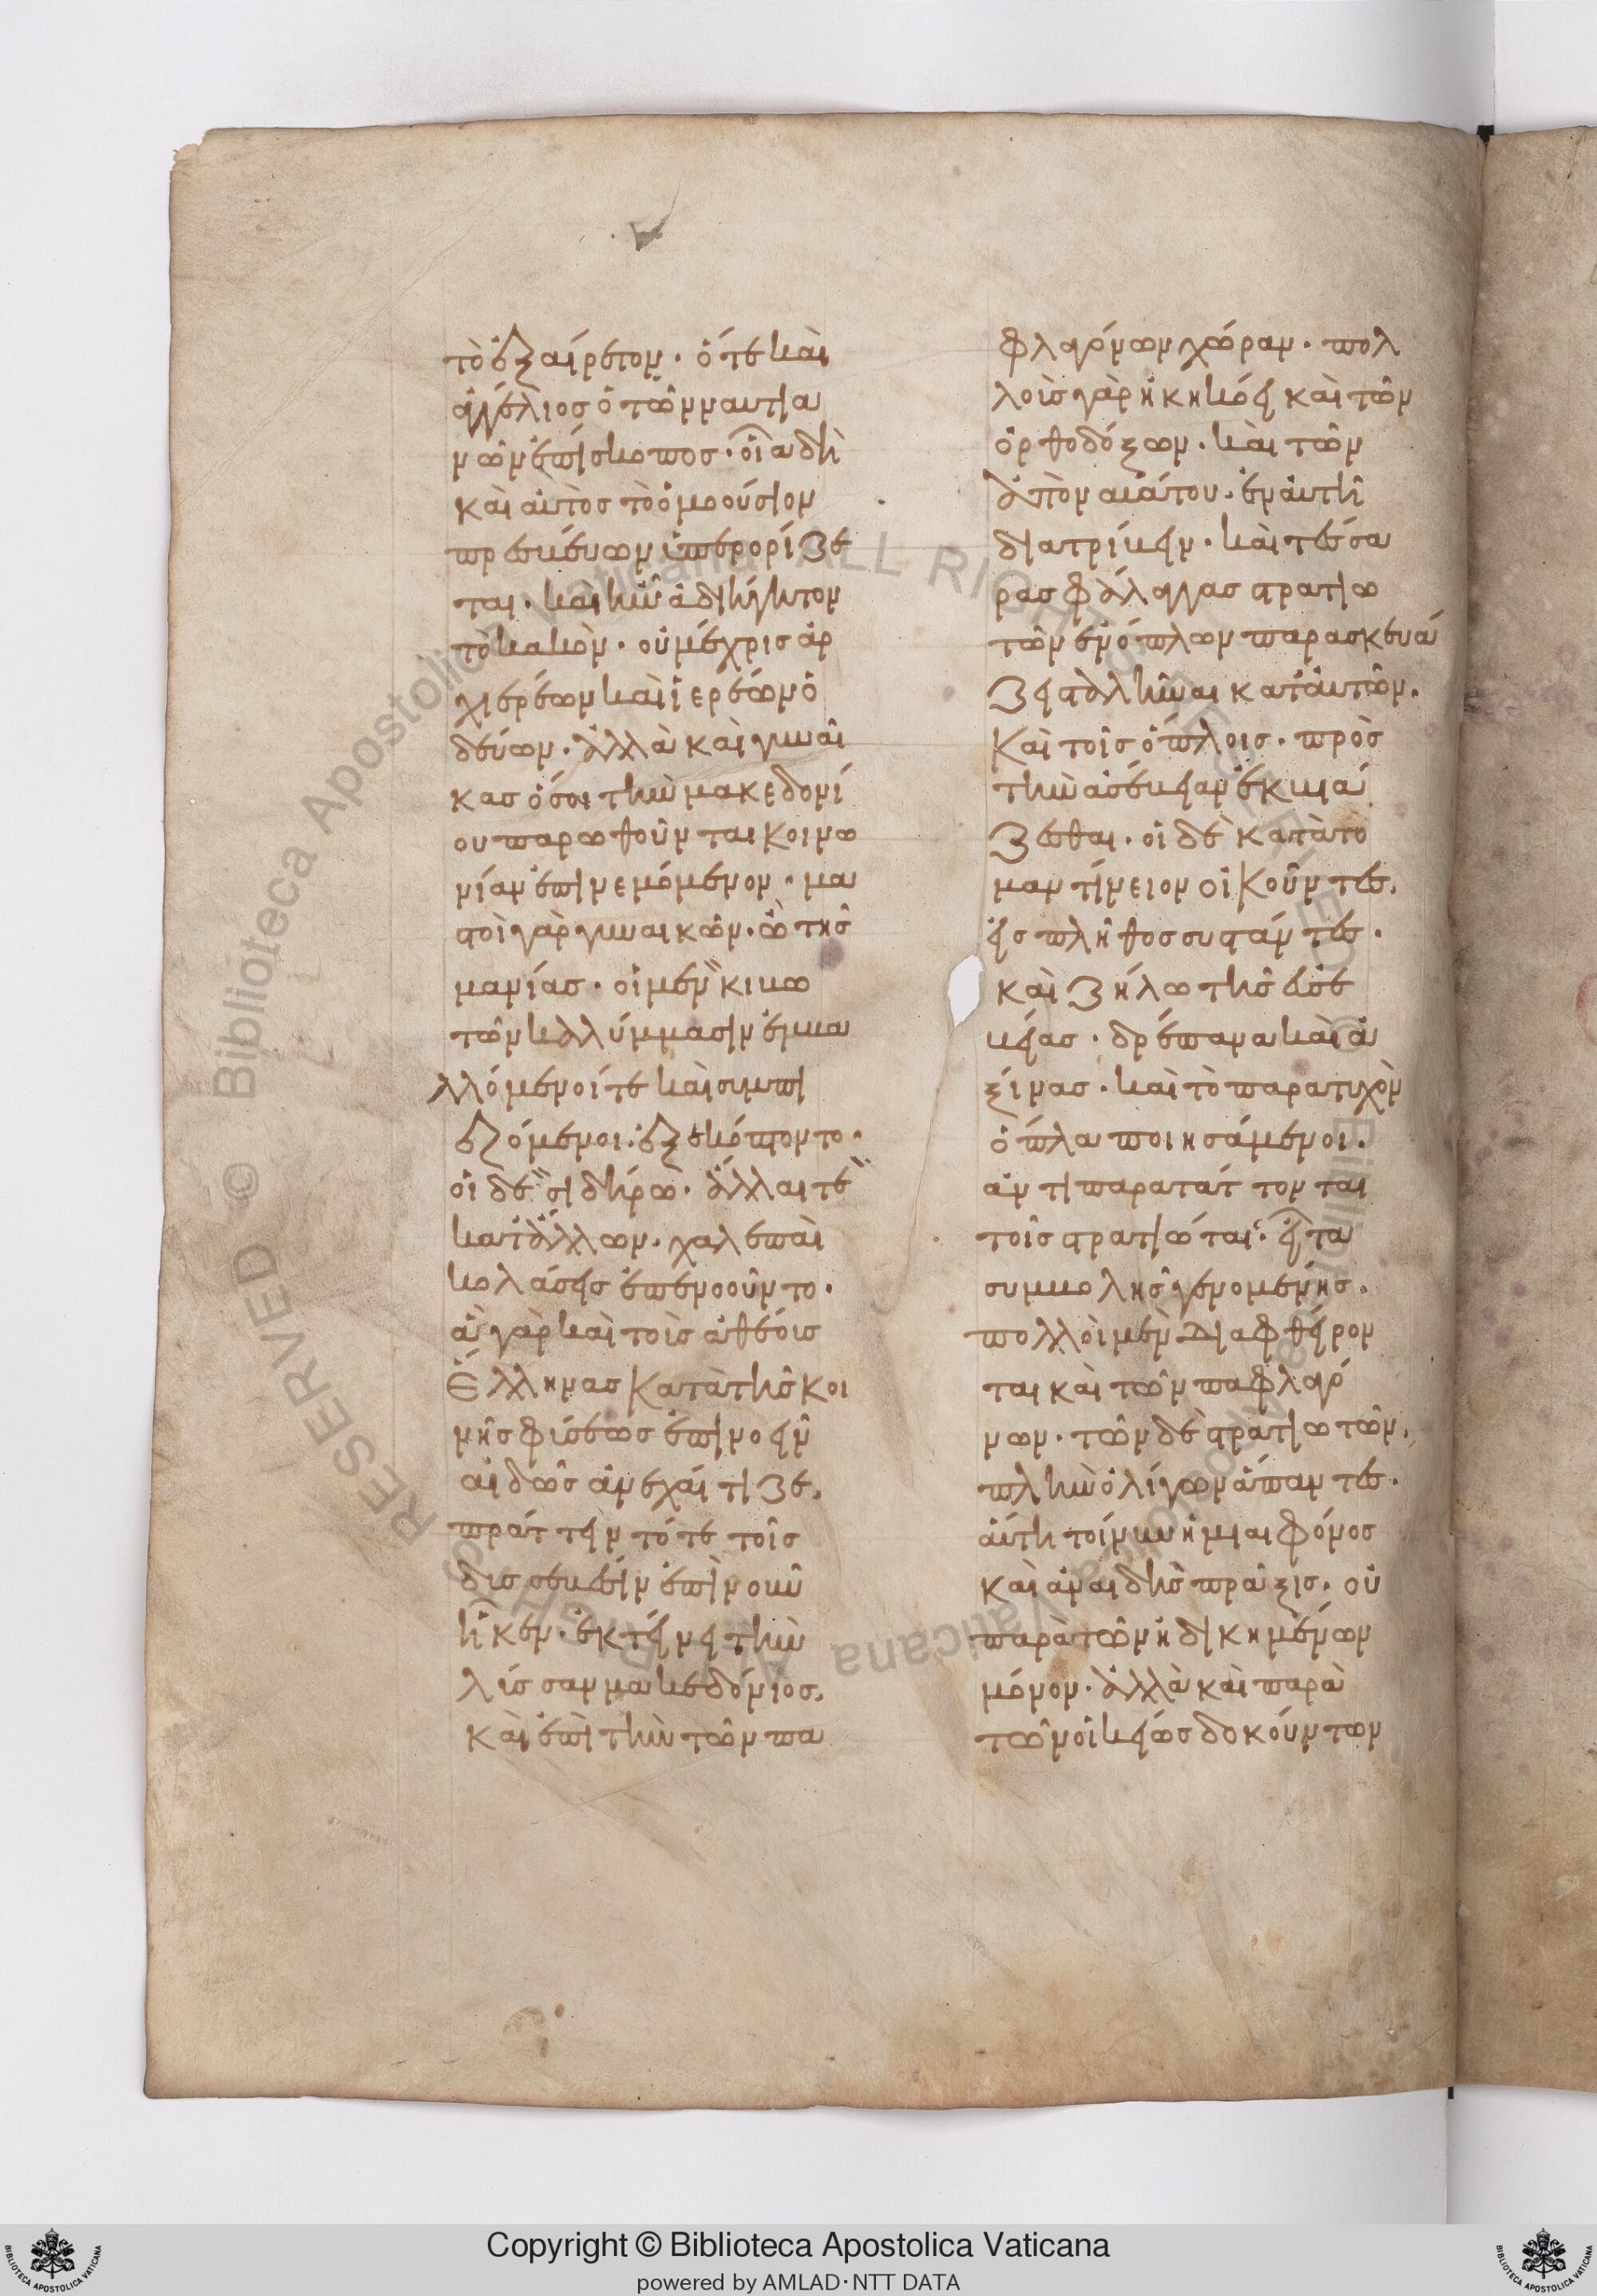 τὸ ἐξαίρετον· ὅτε καὶ
ἀγγέλιος ὁ τῶν μαντια
νῶν ἐπίσκοπος· οἷα δὴ
καὶ αὐτὸς τὸ ὁμοούσιον
πρεσβεύων ὑπερορίζε
ται· καὶ ἦν ἀδιήγητον
τὸ κακὸν· οὐ μέχρις ἀρ
χιερέων καὶ ἱερέων ὁ
δεύων· ἀλλὰ καὶ γυναῖ
κας ὅσοι τὴν μακεδονί
ου παρωθοῦνται κοινω
νίαν ἐπινεμόμενον· μα
στοὶ γὰρ γυναικῶν· ὢ τῆς
μανίας· οἱ μὲν κιβω
τῶν καλύμμασιν ἐμβα
λλόμενοί τε καὶ συμπι
εζόμενοι· ἐξεκόπτοντο·
οἱ δὲ σιδήρω· ἄλλαι τὲ
κατ' ἄλλων· χαλεπαὶ
κολάσεις ἐπενοοῦντο·
ἃ γὰρ καὶ τοῖς ἀθέοις
Ἕλλησι κατὰ τῆς κοι
νῆς φύσεως ἐπινοεῖν
αἰδὼς ἀνεχαίτιζε,
πράττειν τότε τοῖς
δυσσεβέσιν ἐπὶ νοῦν
ἧκεν· ἐκτείνει τὴν
λύσσαν μακεδόνιος,
καὶ ἐπὶ τὴν τῶν πα
φλαγόνων χώραν· πολ
λοὺς γὰρ ἠκηκόει καὶ τῶν
ὀρθοδόξων· καὶ τῶν
ἀπὸ ναυάτου· ἐν αὐτῆ
διατρίβειν· καὶ τέσσα
ρας φάλαγγας στρατιω
τῶν ἐν ὅπλων παρασκευά
ζει σταλῆναι κατ' αὐτῶν·
Καὶ τοῖς ὅπλοις· πρὸς
τὴν ἀσέβειαν ἐκβιά
ζεσθαι· οἱ δὲ κατὰ τὸ
μαντίνειον οἰκοῦντες,
εἰς πλῆθος συστάντες·
καὶ ζήλω τῆς εὐσε
βείας· δρέπανα καὶ ἀ
ξίνας· καὶ τὸ παρατυχὸν
ὅπλα ποιησάμενοι·
ἀντιπαρατάττονται
τοῖς στρατιώταις· εἶτα
συμβολῆς γενομένης·
πολλοὶ μὲν διαφθείρον
ται καὶ τῶν παφλαγό
νων· τῶν δὲ στρατιωτῶν,
πλὴν ὀλίγων ἅπαντες·
αὕτη τοίνυν ἡ μιαιφόνος
καὶ ἀναιδὴς πρᾶξις· οὐ
παρὰ τῶν ἠδικημένων
μόνον· ἀλλὰ καὶ παρὰ
τῶν οἰκείως δοκούντων
Copyright © Biblioteca Apostolica Vaticana
powered by AMLAD·NTT DATA